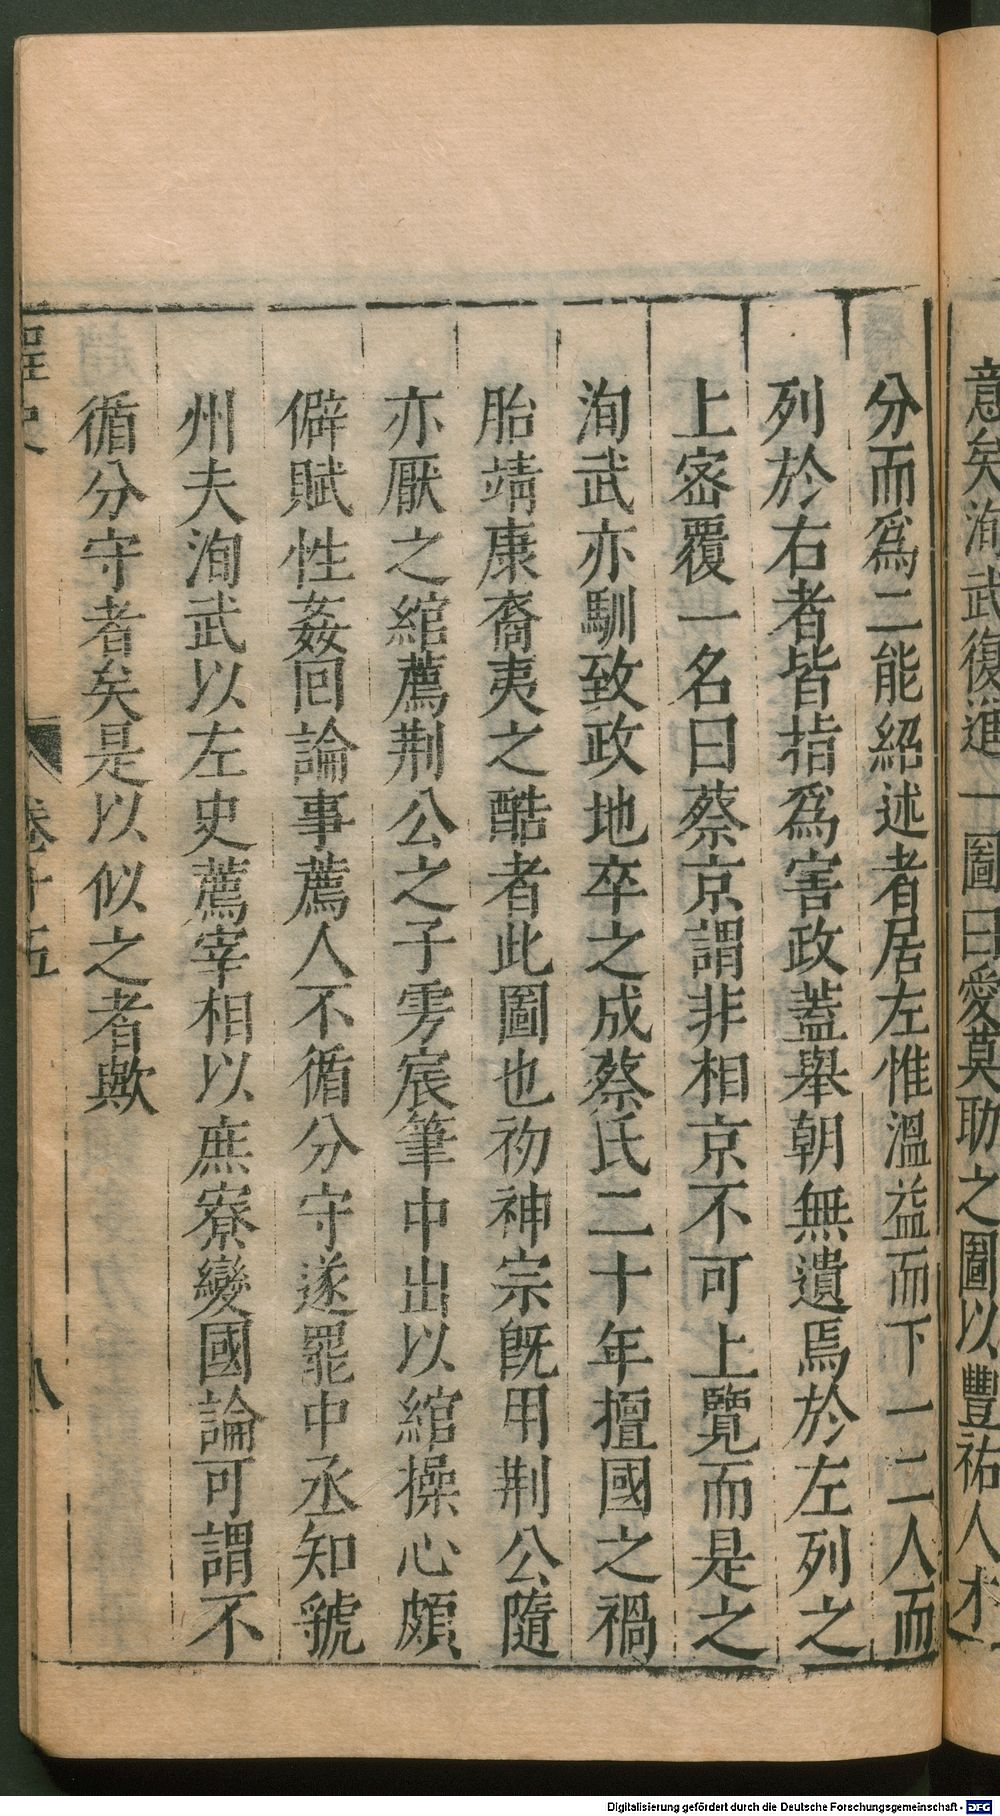 意矣洵武復進一圖曰愛莫助之圖以豐祐人才
分而爲二能紹述者居左惟溫益而下一二人而
列於右者皆指爲害政蓋舉朝無遺焉於左列之
上密覆一名曰蔡京謂非相京不可上覽而是之
洵武亦馴致政地卒之成蔡氏二十年擅國之禍
胎靖康裔夷之酷者此圖也初神宗旣用荆公隨
亦厭之綰薦荆公之子雱宸筆中出以綰操心頗
僻賦性姦回論事薦人不循分守遂罷中丞知虢
州夫洵武以左史薦宰相以庶寮變國論可謂不
循分守者矣是以似之者歟
桯史
卷十五
八
Digitalisierung gefördert durch die Deutsche Forschungsgemeinschaft - DFG